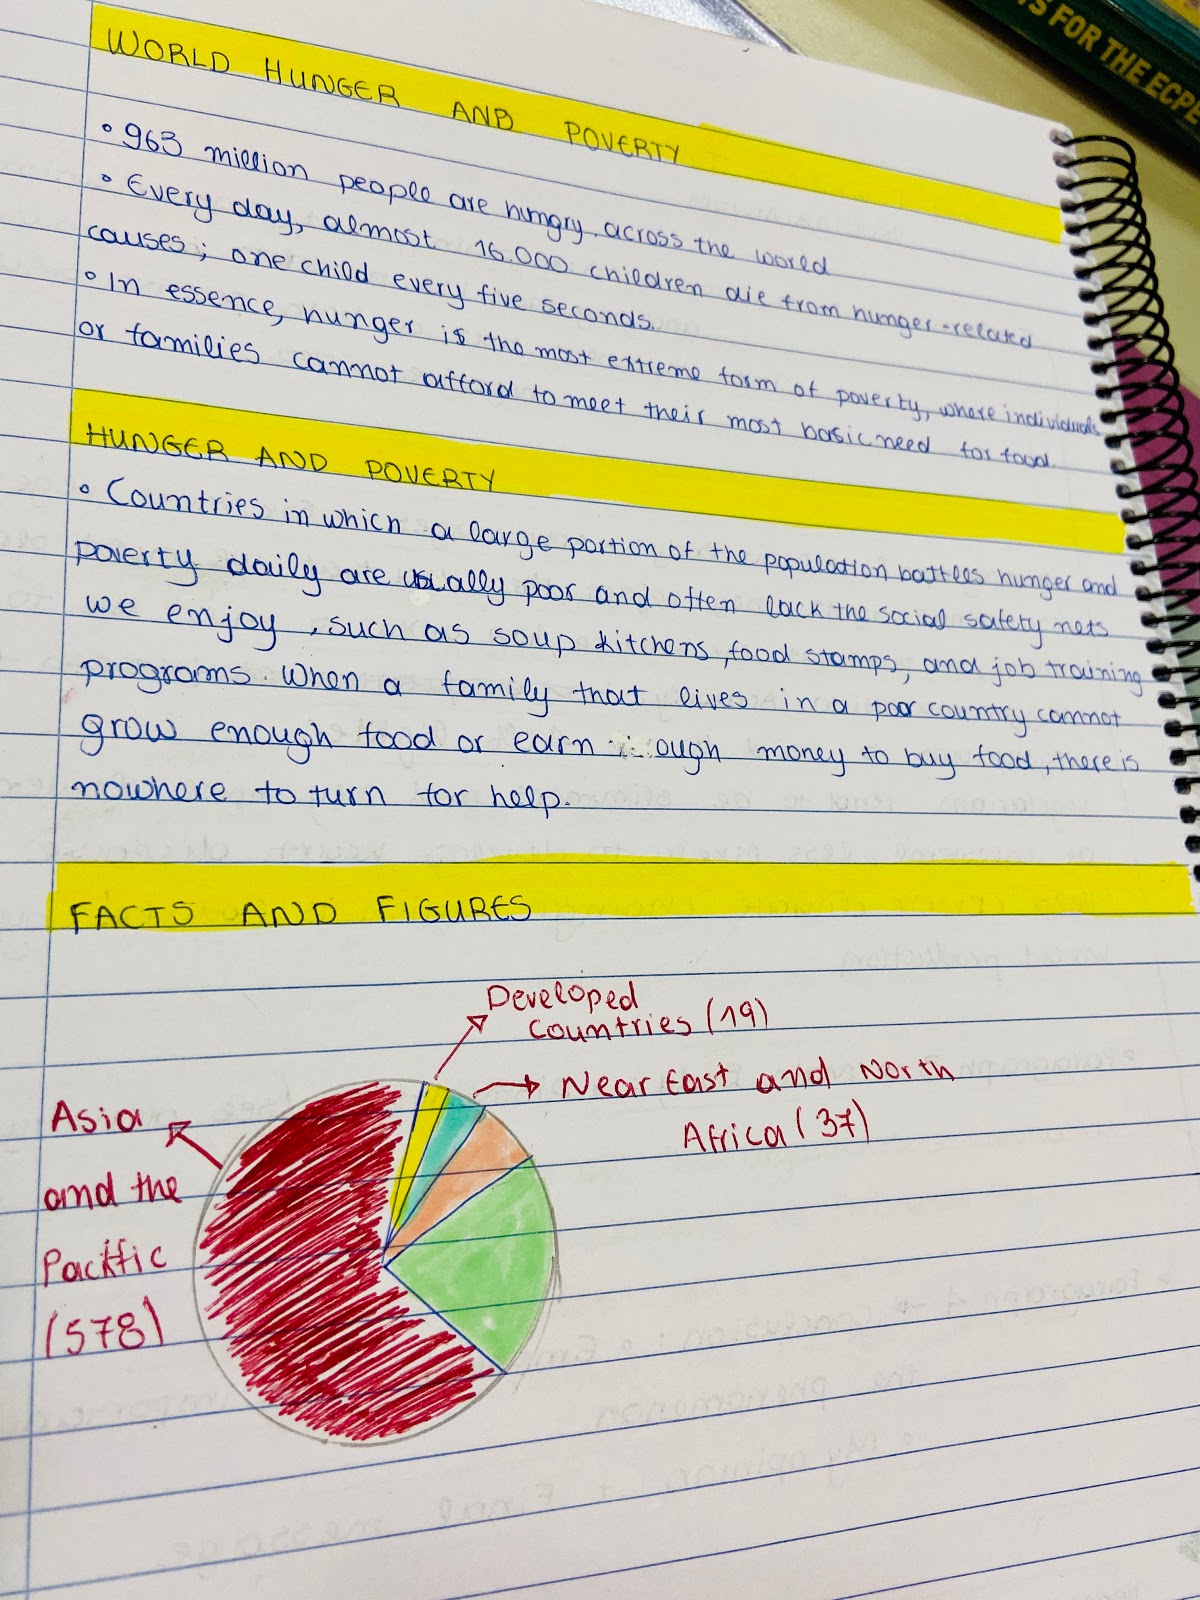 S FOR THE ECPE
WORLD HUNGER AND POVERTY
• 963 million people are hungry across the world
• Every day, almost 16.000 children die from hunger-related
causes; one child every five seconds.
• In essence, hunger is the most extreme form of poverty, where individuals
or families cannot afford to meet their most basic need for food.
HUNGER AND POVERTY
• Countries in which a large portion of the population battles hunger and
poverty daily are usually poor and often lack the social safety nets
we enjoy, such as soup kitchens, food stamps, and job training
programs. When a family that lives in a poor country cannot
grow enough food or earn ough money to buy food, there is
nowhere to turn for help.
FACTS AND FIGURES
Developed
countries (19)
Near East and North
Africa (37)
Asia
and the
Pacific
(578)